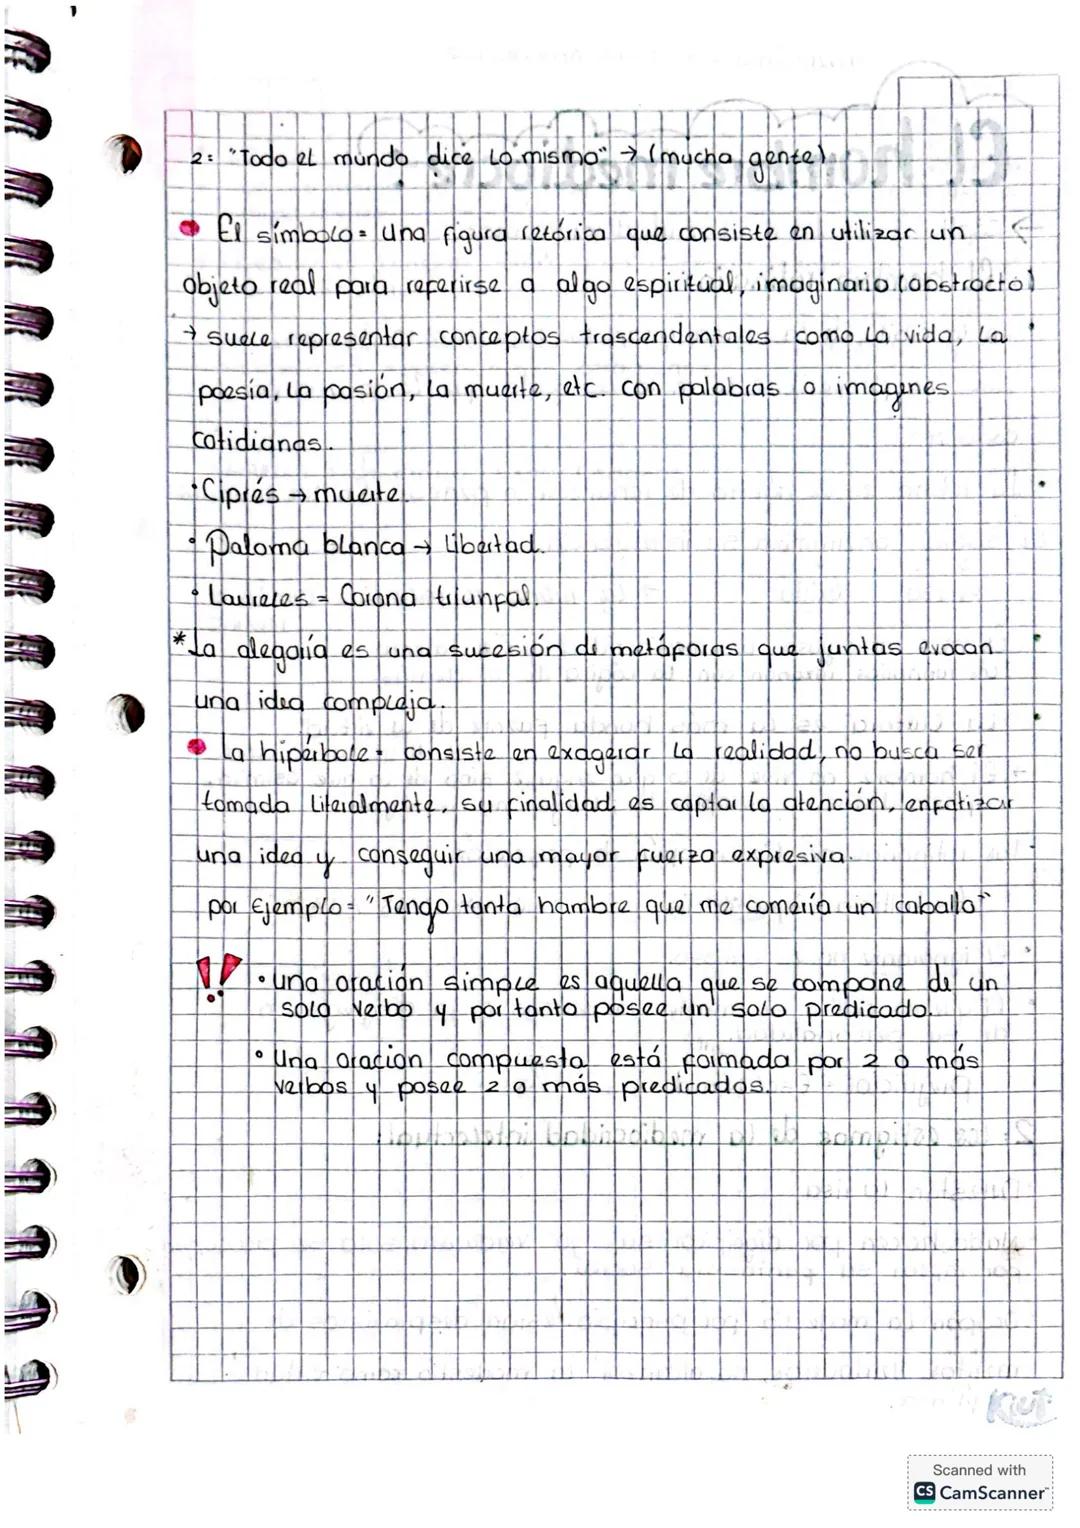 2: "Todo el mundo dice lo mismo" → (mucha gente)
El símbolo= una figura retórica que consiste en utilizar un
objeto real para referirse a algo espiritual, imaginario (abstracto)
→ suele representar conceptos trascendentales como la vida, la
poesía, la pasión, la muerte, etc. con palabras o imagenes
cotidianas.
• Ciprés → muerte.
• Paloma blanca → libertad.
• Laureles = Corona triunfal.
* La alegoría es una sucesión de metáforas que juntas evocan
una idea compleja.
La hipérbole= consiste en exagerar la realidad, no busca ser
tomada literalmente, su finalidad es captar la atención, enfatizar
una idea y conseguir una mayor fuerza expresiva.
por Ejemplo= "Tengo tanta hambre que me comería un caballo"
!! • una oración simple es aquella que se compone de un
solo verbo y por tanto posee un solo predicado.
• Una oracion compuesta está formada por 2 o más
verbos y posee 2 o más predicados.
Scanned with
CS CamScanner